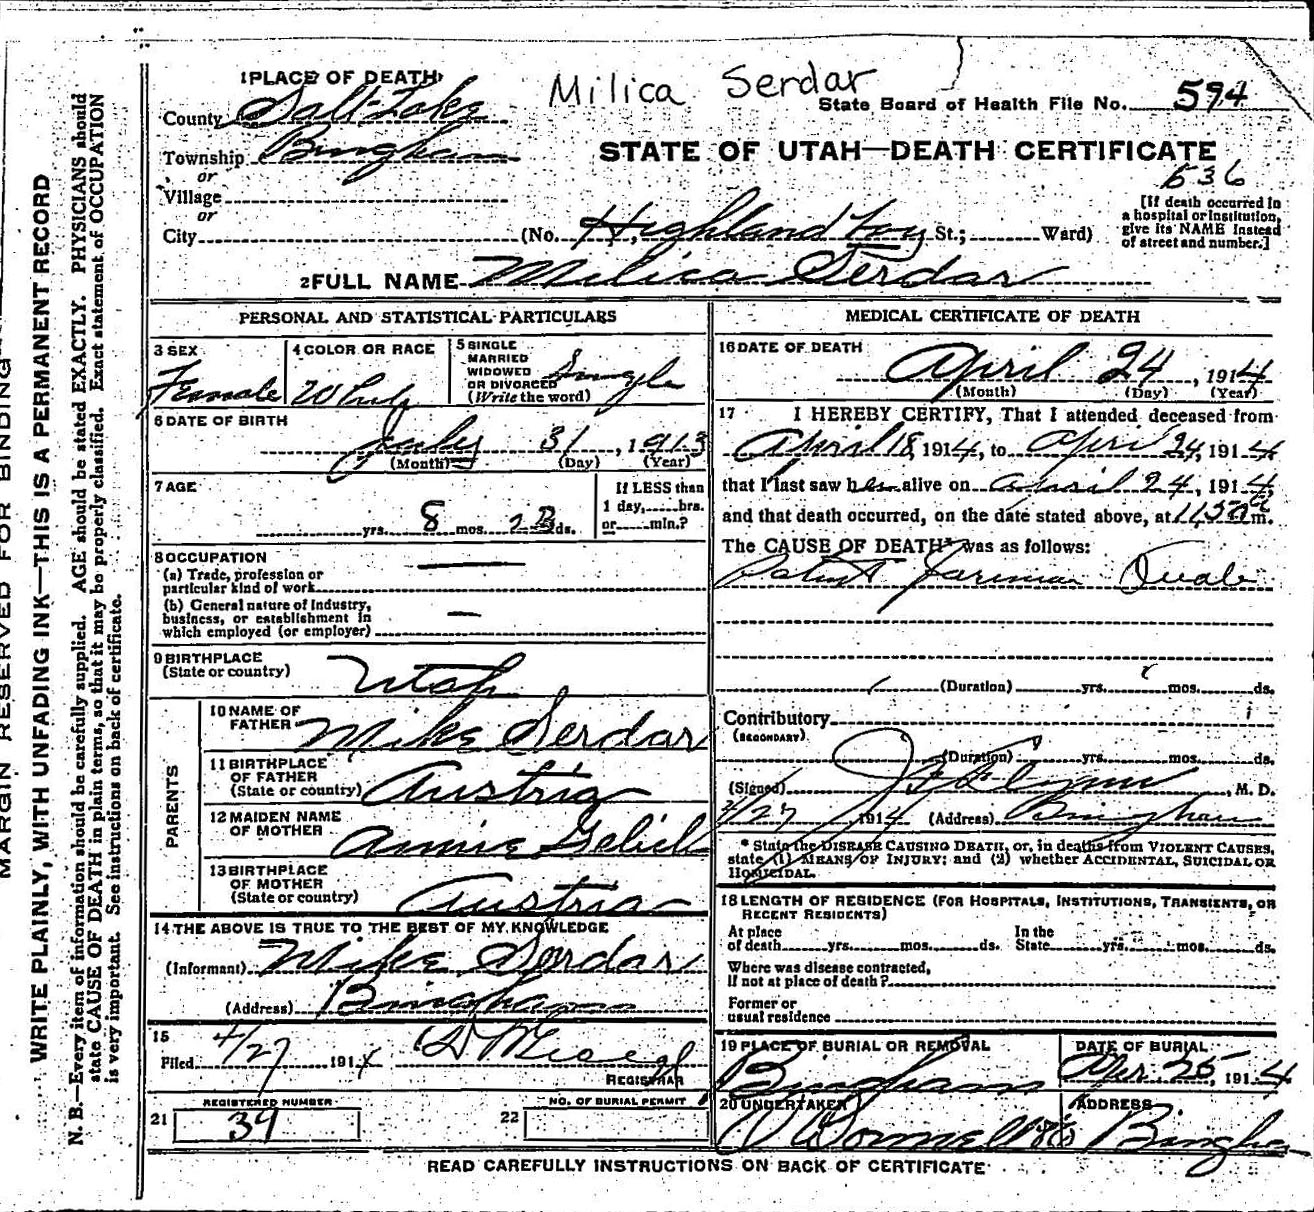 Milica Serdar
1 PLACE OF DEATH
County Salt Lake
State Board of Health File No. 594
Township Bingham
or
STATE OF UTAH—DEATH CERTIFICATE
636
Village
or
City (No. Highland Boy St.; Ward)
[If death occurred in a hospital or institution, give its NAME instead of street and number.]
2 FULL NAME Milica Serdar
PERSONAL AND STATISTICAL PARTICULARS
3 SEX Female
4 COLOR OR RACE White
5 SINGLE MARRIED WIDOWED OR DIVORCED (Write the word) Single
6 DATE OF BIRTH
July 31, 1913
(Month) (Day) (Year)
7 AGE
yrs. 8 mos. 23 ds.
If LESS than 1 day, hrs. or min.?
8 OCCUPATION
(a) Trade, profession or particular kind of work —
(b) General nature of Industry, business, or establishment in which employed (or employer) —
9 BIRTHPLACE (State or country) Utah
PARENTS
10 NAME OF FATHER Mike Serdar
11 BIRTHPLACE OF FATHER (State or country) Austria
12 MAIDEN NAME OF MOTHER Annie
13 BIRTHPLACE OF MOTHER (State or country) Austria
14 THE ABOVE IS TRUE TO THE BEST OF MY KNOWLEDGE
(Informant) Mike Serdar
(Address) Bingham
15
Filed 4/27 1914
REGISTRAR
REGISTERED NUMBER
21 39
NO. OF BURIAL PERMIT
22
MEDICAL CERTIFICATE OF DEATH
16 DATE OF DEATH
April 24, 1914
(Month) (Day) (Year)
17 I HEREBY CERTIFY, That I attended deceased from
April 18, 1914, to April 24, 1914
that I last saw her alive on April 24, 1914,
and that death occurred, on the date stated above, at 11:50 m.
The CAUSE OF DEATH* was as follows:
Patent Foramen Ovale
(Duration) yrs. mos. ds.
Contributory
(SECONDARY)
(Duration) yrs. mos. ds.
(Signed) , M. D.
4/27, 1914 (Address) Bingham
* State the DISEASE CAUSING DEATH, or, in deaths from VIOLENT CAUSES, state (1) MEANS OF INJURY; and (2) whether ACCIDENTAL, SUICIDAL OR HOMICIDAL.
18 LENGTH OF RESIDENCE (FOR HOSPITALS, INSTITUTIONS, TRANSIENTS, OR RECENT RESIDENTS)
At place of death yrs. mos. ds. In the State yrs. mos. ds.
Where was disease contracted, If not at place of death?
Former or usual residence
19 PLACE OF BURIAL OR REMOVAL Bingham
DATE OF BURIAL Apr. 25, 1914
20 UNDERTAKER O'Donnell & Co
ADDRESS Bingham
READ CAREFULLY INSTRUCTIONS ON BACK OF CERTIFICATE
MARGIN RESERVED FOR BINDING
WRITE PLAINLY, WITH UNFADING INK—THIS IS A PERMANENT RECORD
N. B.—Every item of information should be carefully supplied. AGE should be stated EXACTLY. PHYSICIANS should
state CAUSE OF DEATH in plain terms, so that it may be properly classified. Exact statement of OCCUPATION
is very important. See instructions on back of certificate.